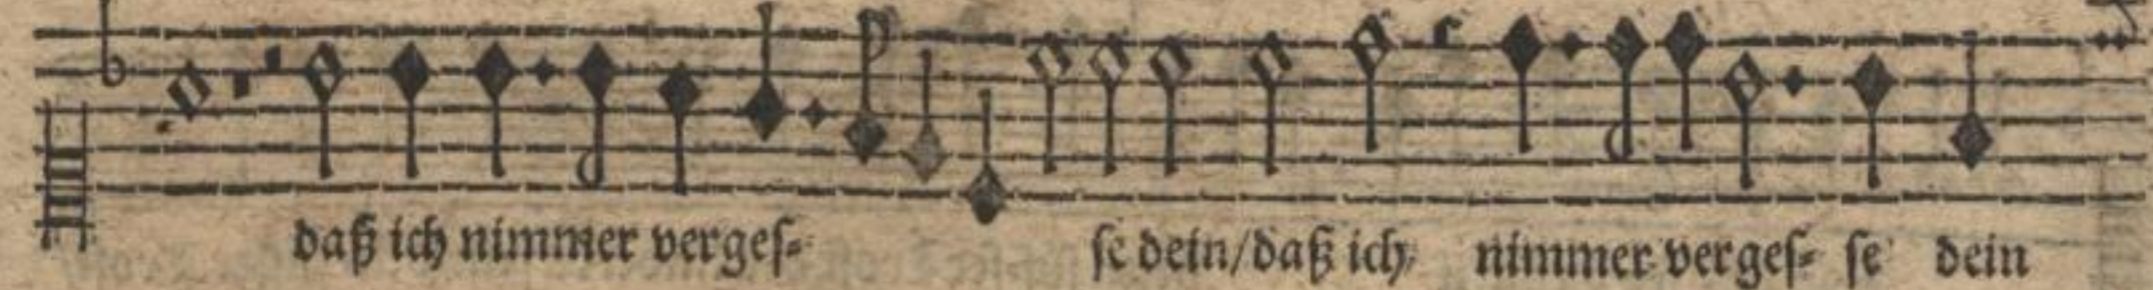 daß ich nimmer vergeſ⸗ ſe dein/daß ich nimmer vergeſ⸗ ſe dein